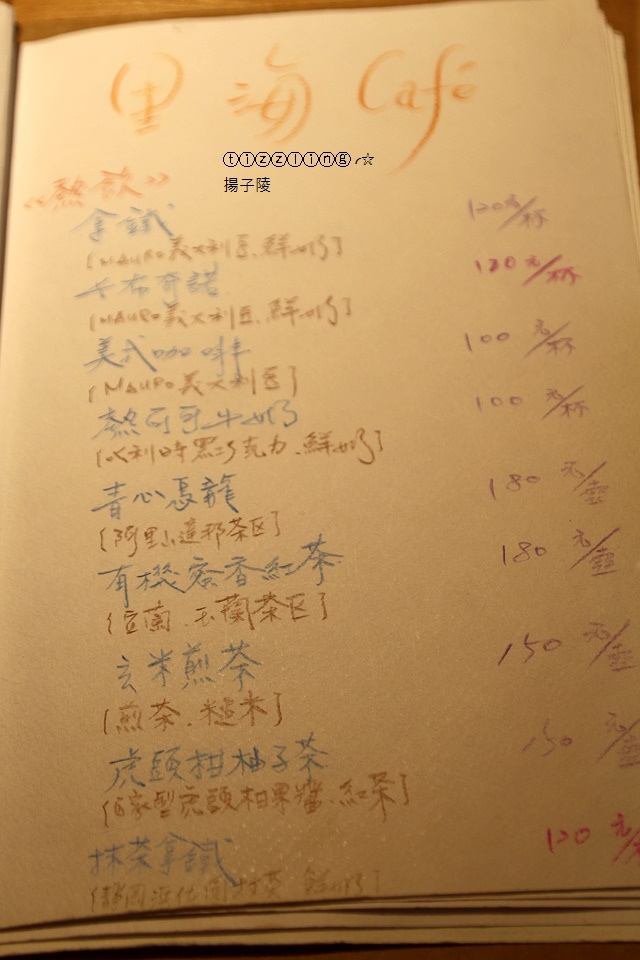 里海 Café
ⓣⓘⓩⓩⓛⓘⓝⓖ╭☆
揚子陵
《熱飲》
拿鐵 120元/杯
[MAURO義大利豆、鮮奶]
卡布奇諾 120元/杯
[MAURO義大利豆、鮮奶]
美式咖啡 100元/杯
[MAURO義大利豆]
熱可可牛奶 100元/杯
[比利時黑巧克力、鮮奶]
青心烏龍 180元/壺
[阿里山達邦茶区]
有機蜜香紅茶 180元/壺
[宜蘭、玉蘭茶区]
玄米煎茶 150元/壺
[煎茶、糙米]
虎頭柑柚子茶 150元/壺
[自家製虎頭柑果醬、紅茶]
抹茶拿鐵 120元/杯
[靜岡 抹茶、鮮奶]